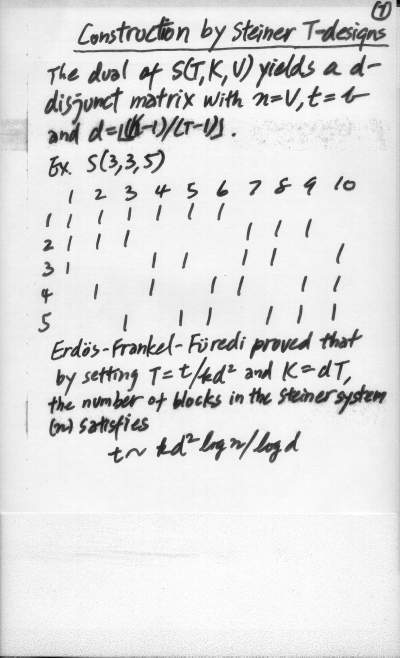 7
Construction by Steiner T-designs
The dual of S(T,K,V) yields a d-
disjunct matrix with n=V, t=b
and d=⌊(K-1)/(T-1)⌋.
Ex. S(3,3,5)
1 2 3 4 5 6 7 8 9 10
1 1 1 1 1 1 1
2 1 1 1 1 1 1
3 1 1 1 1 1 1
4 1 1 1 1 1 1
5 1 1 1 1 1 1
Erdös-Frankel-Füredi proved that
by setting T=t/kd² and K=dT,
the number of blocks in the Steiner system
(n) satisfies
t~ kd² log n/log d